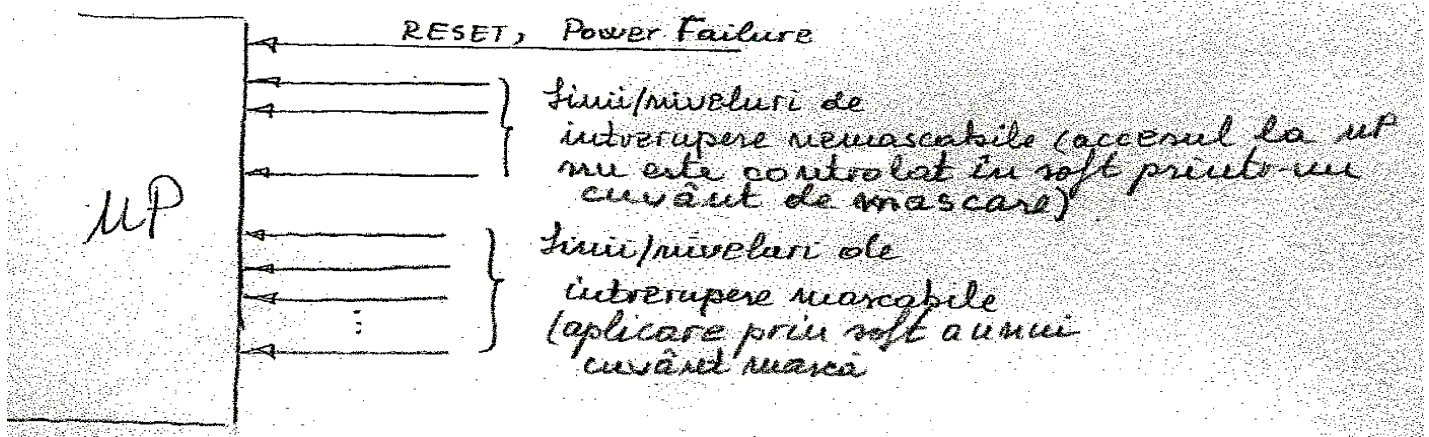 RESET, Power Failure
Linii/niveluri de
întrerupere nemascabile (accesul la µP
nu este controlat în soft printr-un
cuvânt de mascare)
µP
Linii/niveluri de
întrerupere mascabile
(aplicare prin soft a unui
cuvânt mască